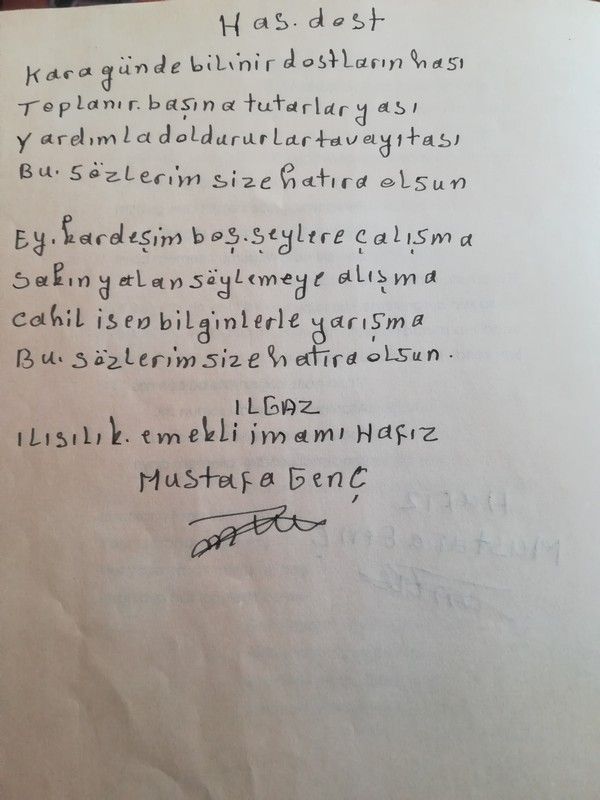 Has. dost
Kara günde bilinir dostların hası
Toplanır. başına tutarlar yası
Yardımla doldururlar tavayı tası
Bu. sözlerim size hatıra olsun
Ey. kardeşim boş. şeylere çalışma
Sakın yalan söylemeye alışma
Cahil isen bilginlerle yarışma
Bu. sözlerim size hatıra olsun.
ILGAZ
ılısılık. emekli imamı Hafız
Mustafa Genç
HAFIZ
Mustafa GENÇ